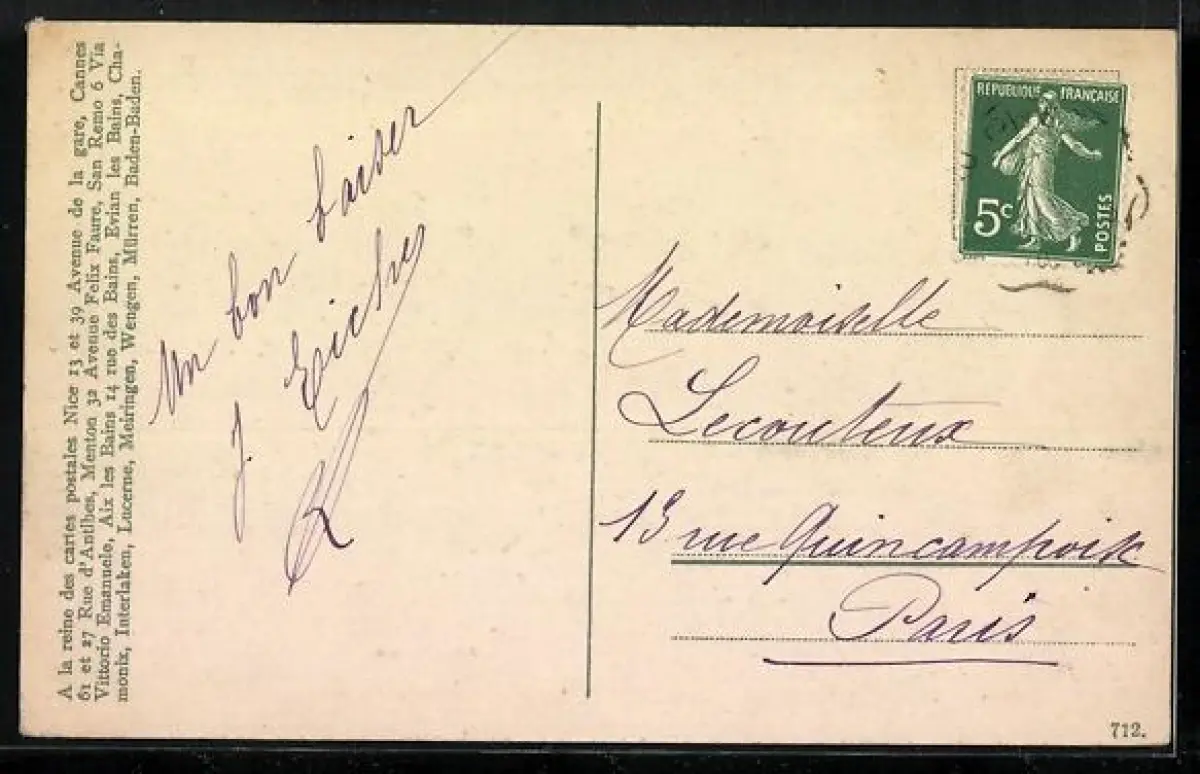 A la reine des cartes postales Nice 13 et 39 Avenue de la gare, Cannes
61 et 27 Rue d'Antibes, Menton 32 Avenue Felix Faure, San Remo 6 Via
Vittorio Emanuele, Aix les Bains 14 rue des Bains, Evian les Bains, Cha-
monix, Interlaken, Lucerne, Meiringen, Wengen, Mürren, Baden-Baden.
Un bon baiser
J.
REPUBLIQUE FRANÇAISE
5c
POSTES
Mademoiselle
Lecouteux
13 rue Quincampoix
Paris
712.